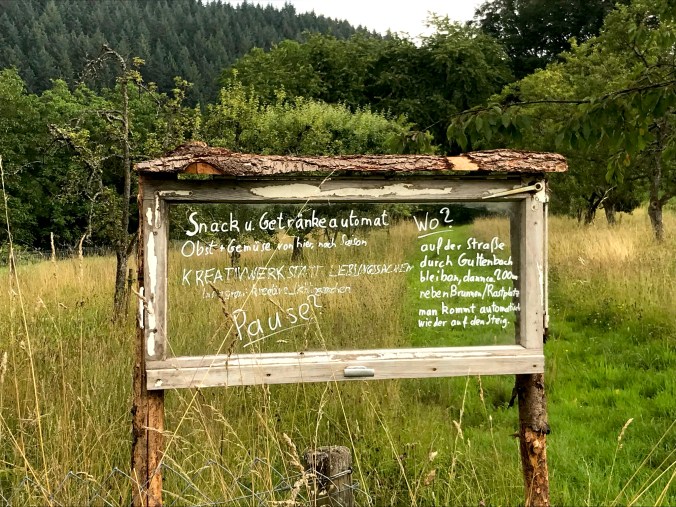 Snack u. Getränkeautomat
Obst + Gemüse von hier, nach Saison
KREATIVWERKSTATT LIEBLINGSSACHEN
Pause?
Wo?
auf der Straße
durch Guttenbach
bleiben, dann ca. 200m
neben Brunnen/Rastplatz
man kommt automatisch
wieder auf den Steig.